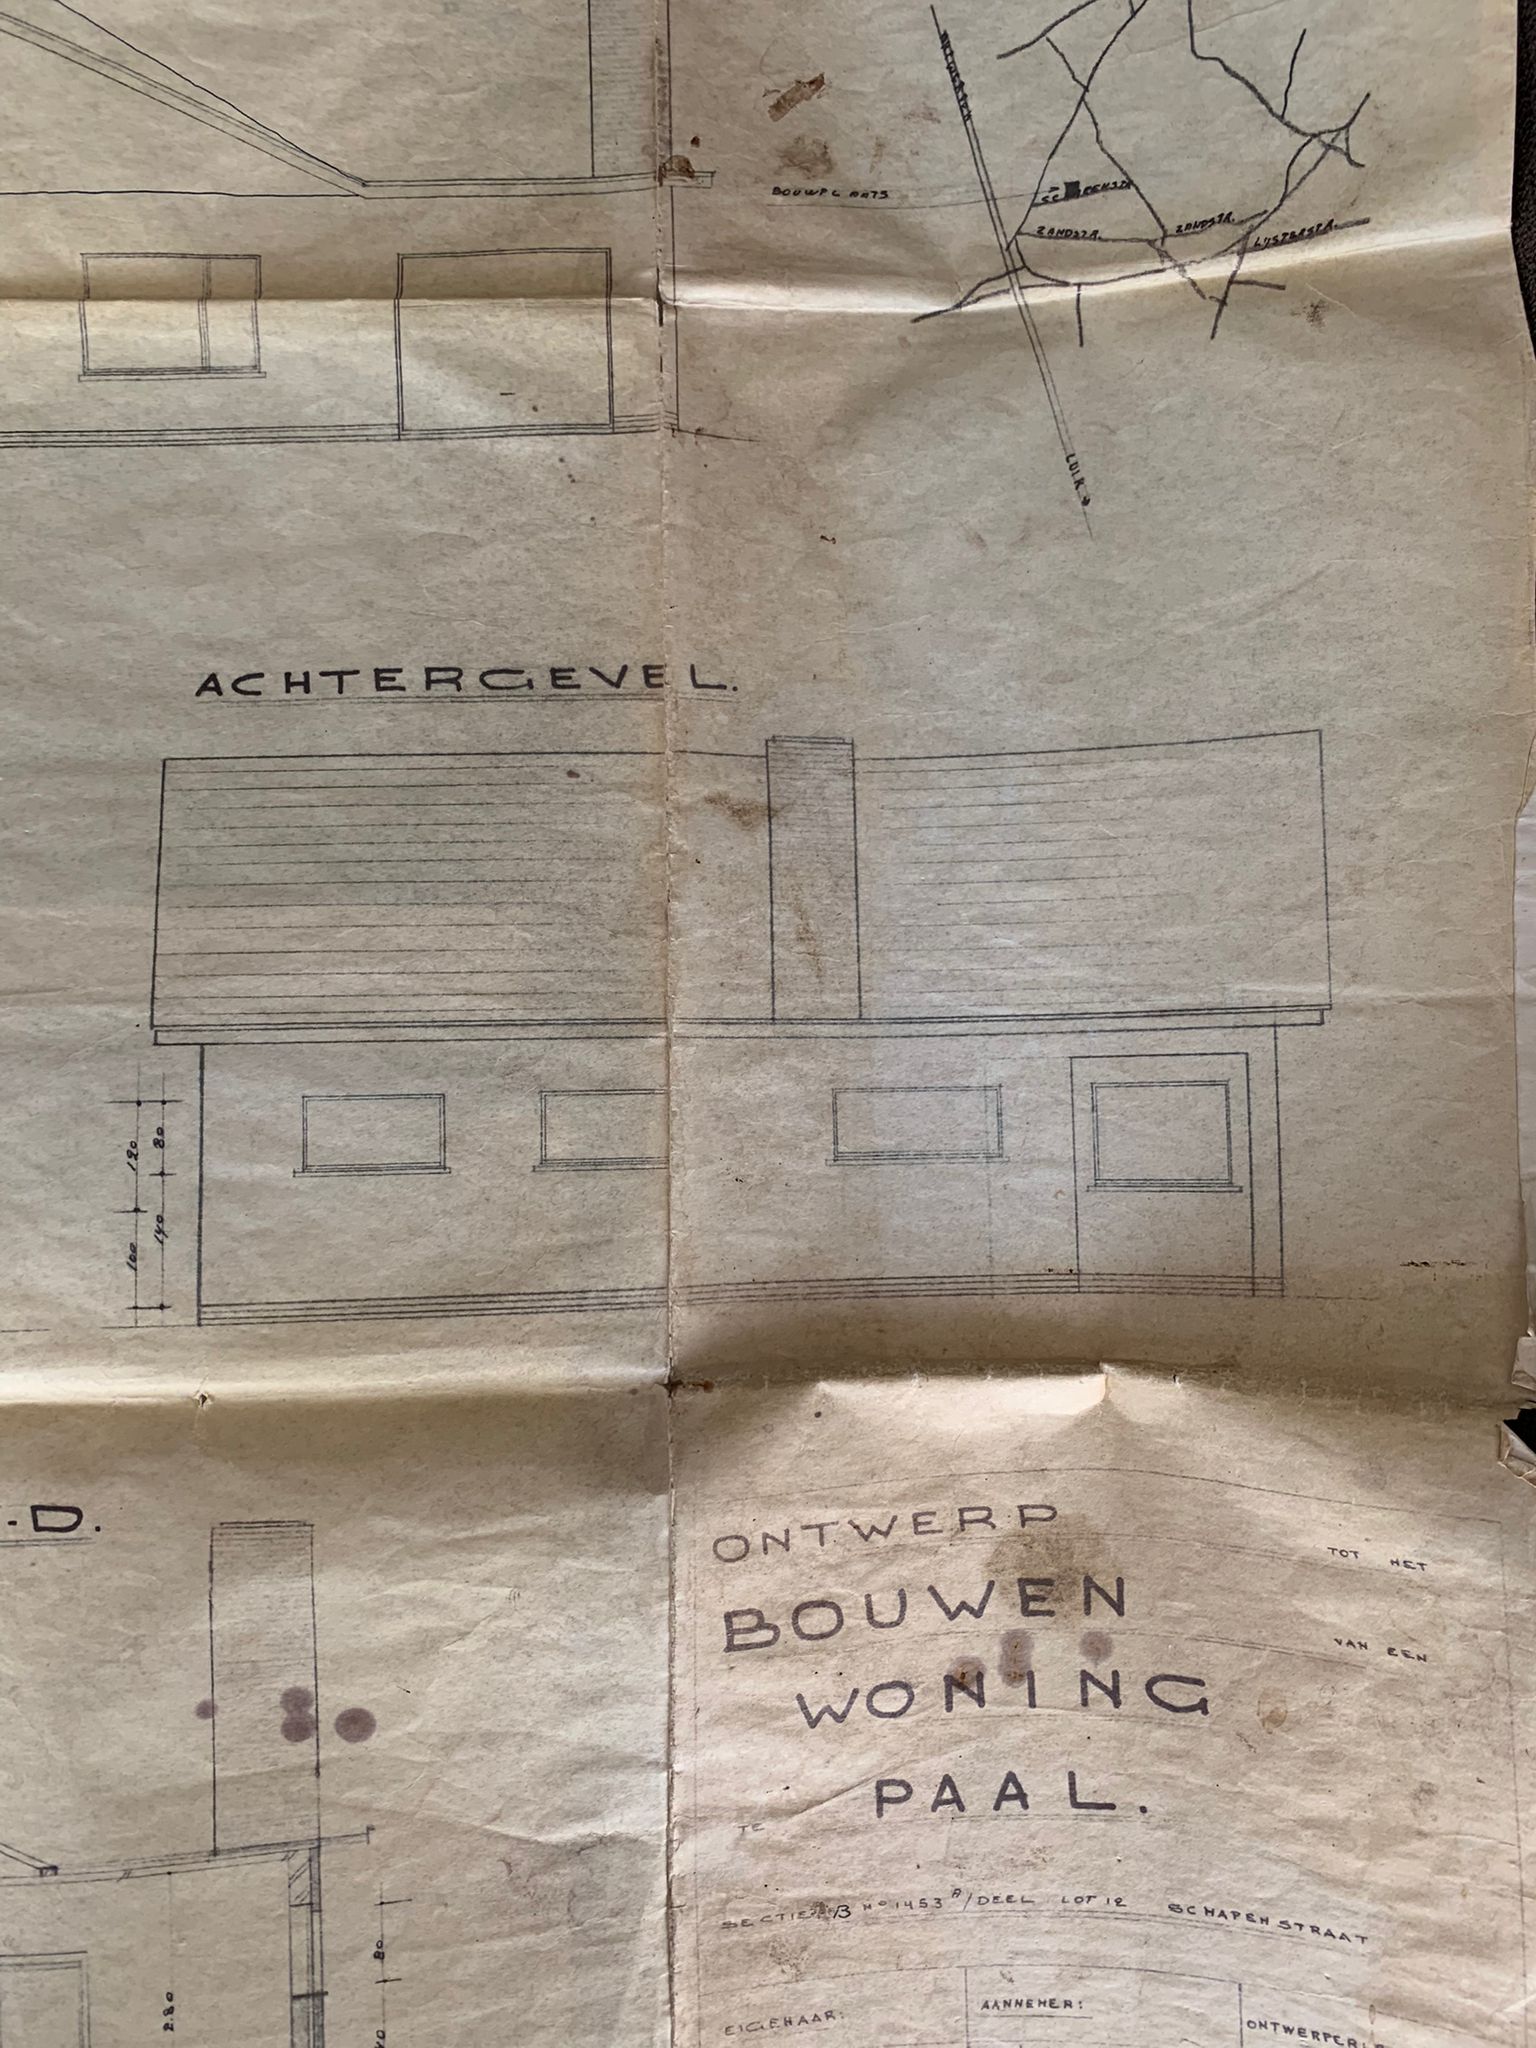 BOUWPLAATS
ZANDSTR.
ZANDSTR.
LYSTERSTR.
LUIK
ACHTERGEVEL.
120
80
100
140
-D.
ONTWERP TOT HET
BOUWEN VAN EEN
WONING
TE PAAL.
SECTIE B No 1453 A/DEEL LOT 12 SCHAPENSTRAAT
80
2.80
EIGENAAR:
AANNEMER:
ONTWERPER: